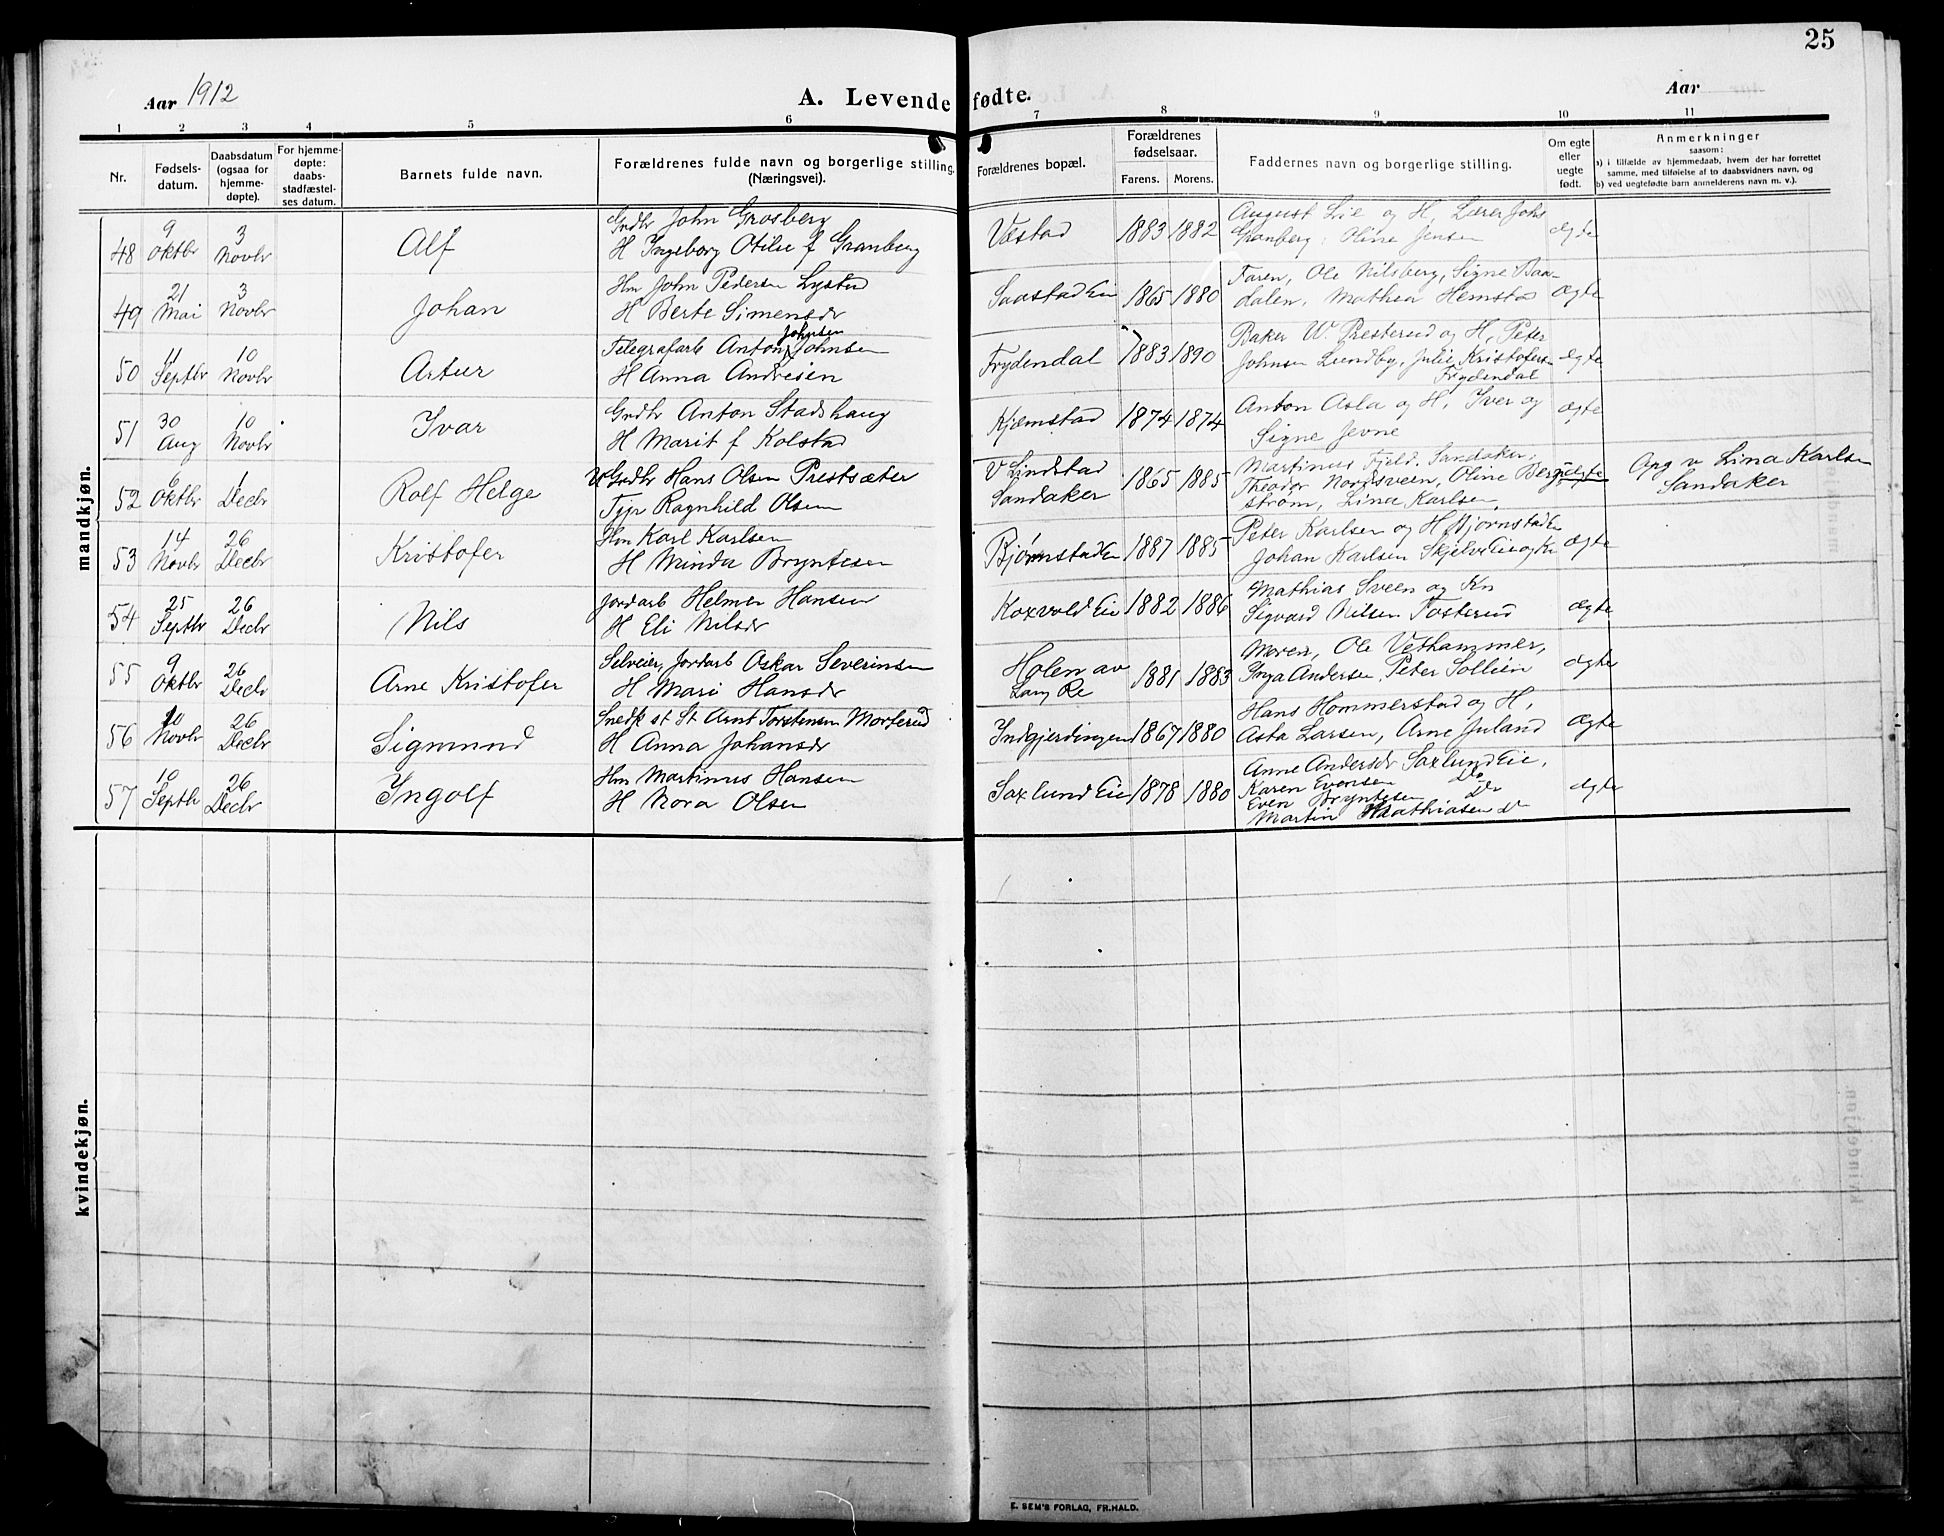 25
Aar 1912
A. Levende fødte.
Aar
1 2 3 4 5 6 7 8 9 10 11
Nr.
Fødsels-
datum.
Daabsdatum
(ogsaa for
hjemme-
døpte).
For hjemme-
døpte:
daabs-
stadfæstel-
ses datum.
Barnets fulde navn.
Forældrenes fulde navn og borgerlige stilling.
(Næringsvei).
Forældrenes bopæl.
Forældrenes
fødselsaar.
Farens. Morens.
Faddernes navn og borgerlige stilling.
Om egte
eller
uegte
født.
Anmerkninger
saasom:
a) i tilfælde av hjemmedaab, hvem der har forrettet
samme, med tilføielse af to daabsvidners navn, og
b) ved uegtefødte barn anmelderens navn m. v.).
mandkjøn.
48 9 Oktbr 3 Novbr Alf
Grdbr John Grosberg
H Ingeborg Otilie f Granberg
Væstad 1883 1882
August Lie og H, Lærer Johs
Granberg, Oline Jensen
ægte
49 21 Mai 3 Novbr Johan
Hm John Pedersen Lystad
H Berte Simensdr
Saastad Eie 1865 1880
Faren, Ole Nilsberg, Signe Baa-
dalen, Mathea Hemstad
ægte
50 11 Septbr 10 Novbr Artur
Johnsen
Telegrafarb Anton Johnsen
H Anna Andresen
Frydendal 1883 1890
Baker W. Presterud og H, Peter
Johnsen Lundby, Julie Kristofersen
Frydendal
ægte
51 30 Aug 10 Novbr Ivar
Grdbr Anton Stadshaug
H Marit f Kolstad
Kjæmstad 1874 1874
Anton Asla og H, Iver og
Signe Jevne
ægte
52 6 Oktbr 1 Decbr Rolf Helge
Grdbr Hans Olsen Prestsæter
Tjpr Ragnhild Olsen
V Lindstad
Sandaker 1865 1885
Martinus Fjeld, Sandaker,
Theodor Nordsveen, Oline Berg-
strøm, Lina Karlsen,
uægte
Opg v Lina Karlsen
Sandaker
53 14 Novbr 26 Decbr Kristofer
Hm Karl Karlsen
H Minda Bryntesen
Bjørnstad En 1887 1885
Peter Karlsen og H Bjørnstad En
Johan Karlsen Skjelve Eie og Kn
ægte
54 25 Septbr 26 Decbr Nils
Jordarb Helmer Hansen
H Eli Nilsdr
Koxvold Eie 1882 1886
Mathias Sveen og Kn
Sigvard Nilsen Fosterud
ægte
55 9 Oktbr 26 Decbr Arne Kristofer
Selveier, Jordarb Oskar Severinsen
H Mari Hansdr
Holen av
Lang Re 1881 1883
Moren, Ole Vethammer,
Inga Andersen, Peter Sollien
ægte
56 10 Novbr 26 Decbr Sigmund
Snedk st St Arnt Torstensen Morterud
H Anna Johansdr
Indgjerdingen 1867 1880
Hans Hommerstad og H,
Asta Larsen, Arne Juland
ægte
57 10 Septbr 26 Decbr Ingolf
Hm Martinus Hansen
H Nora Olsen
Saxlund Eie 1878 1880
Anne Andersdr Saxlund Eie,
Karen Evensen Do
Even Bryntesen Do
Martin Mathiasen Do
ægte
kvindekjøn.
E. SEM'S FORLAG, FR.HALD.